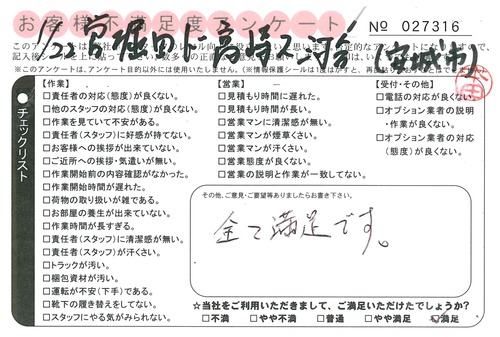 お客様不満足度アンケート
No 027316
1/22
(安城市)
※このアンケートは、アンケート目的以外には使用いたしません。
チェックリスト
【作業】
□責任者の対応(態度)が良くない。
□他のスタッフの対応(態度)が良くない。
□作業を見ていて不安がある。
□責任者(スタッフ)に好感が持てない。
□お客様への挨拶が出来ていない。
□ご近所への挨拶・気遣いが無い。
□作業開始前の内容確認がなかった。
□作業開始時間が遅れた。
□荷物の取り扱いが雑である。
□お部屋の養生が出来ていない。
□作業時間が長すぎる。
□責任者(スタッフ)に清潔感が無い。
□責任者(スタッフ)が汗くさい。
□トラックが汚い。
□梱包資材が汚い。
□運転が不安(下手)である。
□靴下の履き替えをしてない。
□スタッフにやる気がみられない。
【営業】
□見積もり時間に遅れた。
□見積もり時間が長い。
□営業マンに清潔感が無い。
□営業マンが煙草くさい。
□営業マンが汗くさい。
□営業態度が良くない。
□営業の説明と作業が一致してない。
【受付・その他】
□電話の対応が良くない。
□オプション業者の説明
・作業が良くない。
□オプション業者の対応
(態度)が良くない。
その他、ご意見・ご要望等ありましたらお書き下さい。
全て満足です。
☆当社をご利用いただきまして、ご満足いただけたでしょうか?
□不満 □やや不満 □普通 □やや満足 ☑満足